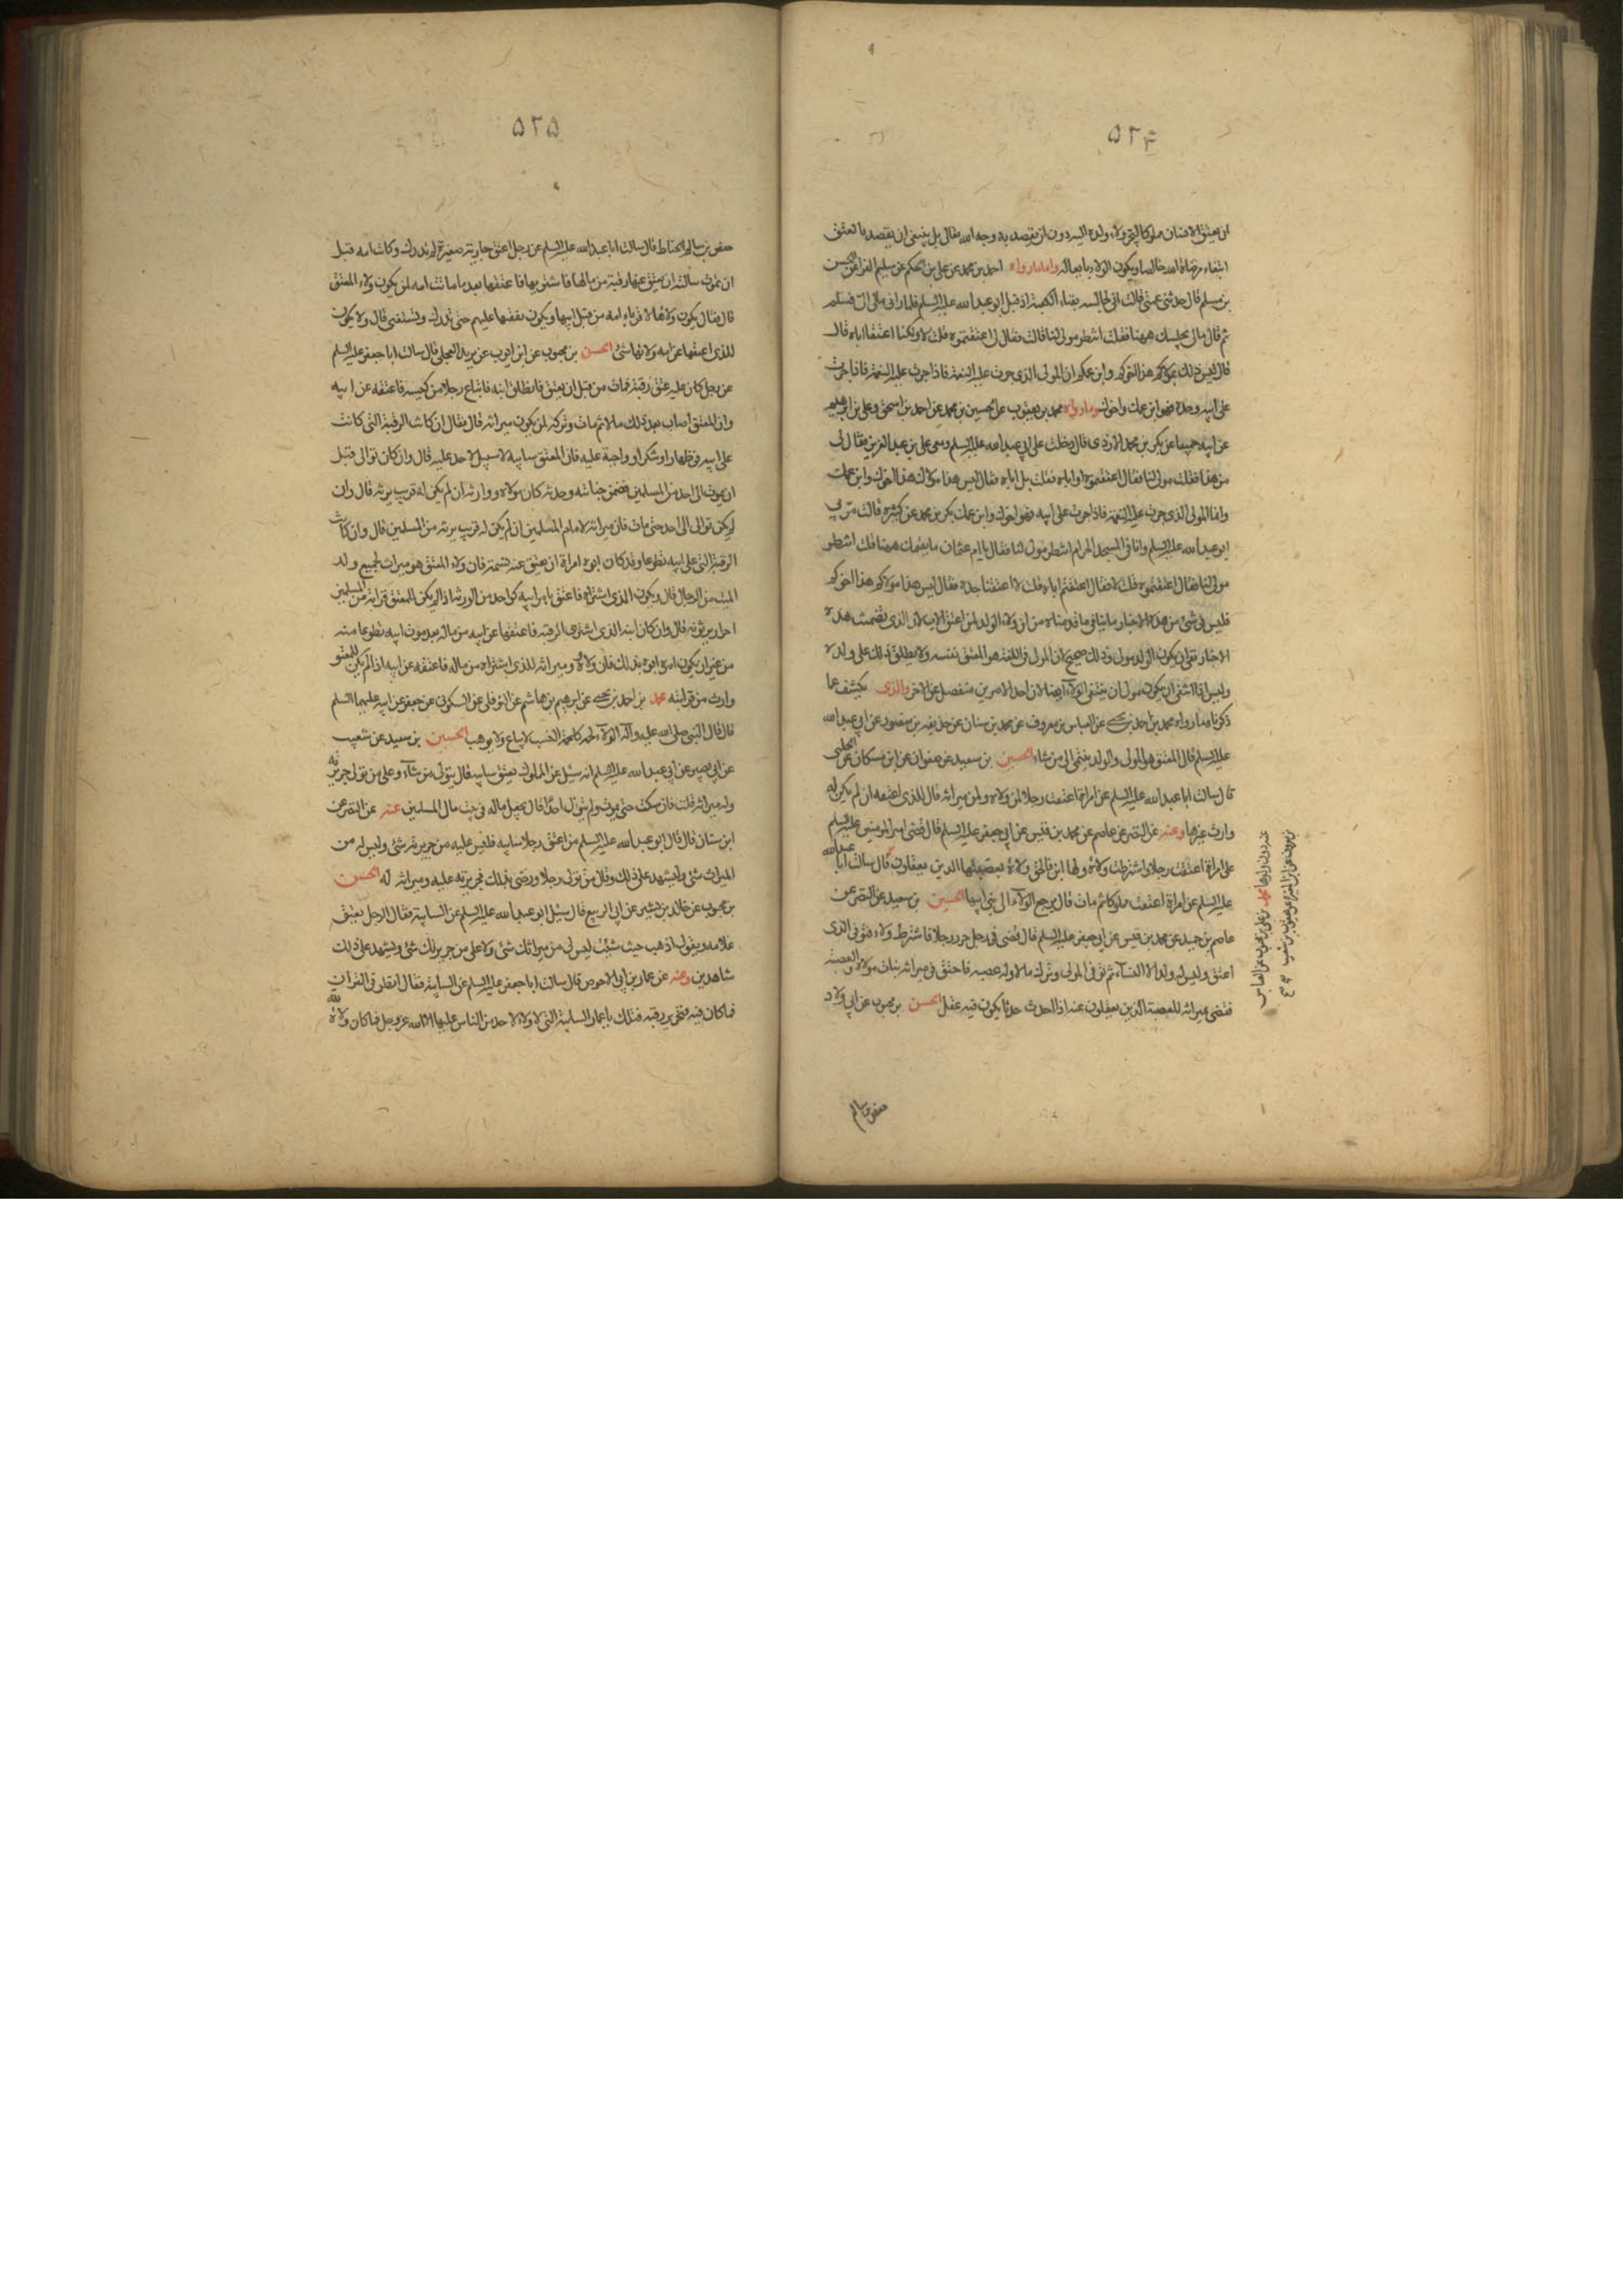 ۵۲۴
ان يعتق الانسان مملوكا ليتولاه ولده اليه دون ان يقصد به وجه الله فقال بل ينبغي ان يقصد بالعتق
ابتغاء مرضاة الله خالصا ويكون الولاء تابعا له واما ما رواه احمد بن محمد عن علي بن الحكم عن سليم الفراء عن الحسن
بن مسلم قال حدثتني عمتي قالت اني لجالسة بفناء الكعبة اذ اقبل ابو عبد الله عليه السلم فلما راني مال الي فسلم
ثم قال ما يجلسك ههنا فقلت انتظر مولى لنا قالت فقال لي اعتقتموه قلت لا ولكنا اعتقنا اباه قال
قال ليس ذلك بمولاكم هذا اخوكم وابن عمكم ان المولى الذي جرت عليه النعمة فاذا جرت عليه النعمة فاذا جرت
على ابيه وجده فهو ابن عمك واخوك وما رواه محمد بن يعقوب عن الحسين بن محمد عن احمد بن اسحق وعلي بن ابرهيم
عن ابيه جميعا عن بكر بن محمد الازدي قال دخلت على ابي عبد الله عليه السلم ومعي علي بن عبد العزيز فقال لي
من هذا فقلت مولى لنا فقال اعتقتموه او اباه فقلت بل اباه فقال ليس هذا مولاك هذا اخوك وابن عمك
وانما المولى الذي جرت عليه النعمة فاذا جرت على ابيه فهو اخوك وابن عمك بكر بن محمد عن كثيرة قالت مر بي
ابو عبد الله عليه السلم وانا في المسجد الحرام انتظر مولى لنا فقال يا ام عثمان ما يقيمك ههنا قلت انتظر
مولى لنا فقال اعتقتموه قلت لا فقال اعتقتم اباه قلت لا اعتقنا جده فقال ليس هذا مولاكم هذا اخوكم
فليس في شئ من هذه الاخبار ما ينافي ما قدمناه من ان ولاء الولد لمن اعتق الاب لان الذي تضمنت هذه
الاخبار نفي ان يكون الولد مولى وذلك صحيح لان المولى في اللغة هو المعتق نفسه ولا يطلق ذلك على ولده
وليس اذا انتفى ان يكون مولى ان ينتفي الولاء ايضا لان احد الامرين منفصل عن الاخر والذي يكشف عما
ذكرناه ما رواه محمد بن احمد بن يحيى عن العباس بن معروف عن محمد بن سنان عن حذيفة بن منصور عن ابي عبد الله
عليه السلم قال المعتق هو المولى والولد ينتمي الى من شاء الحسين بن سعيد عن صفوان عن ابن مسكان عن الحلبي
قال سالت ابا عبد الله عليه السلم عن امراة اعتقت رجلا لمن ولاؤه ولمن ميراثه قال للذي اعتقه ان لم يكن له
وارث غيرها وعنه عن النضر عن عاصم عن محمد بن قيس عن ابي جعفر عليه السلم قال قضى امير المؤمنين عليه السلم
على امراة اعتقت رجلا واشترطت ولاءه ولها ابن فالحق ولاءه بعصبتها الذين يعقلون قال سالت ابا عبد الله
عليه السلم عن امراة اعتقت مملوكا ثم ماتت قال يرجع الولاء الى بني ابيها الحسين بن سعيد عن النضر عن
عاصم بن حميد عن محمد بن قيس عن ابي جعفر عليه السلم قال قضى في رجل حرر رجلا فاشترط ولاءه فتوفي الذي
اعتق وليس له ولد الا النساء ثم توفي المولى وترك مالا وله عصبة فاحتق في ميراثه بنات مولاه والعصبة
فقضى بميراثه للعصبة الذين يعقلون عنه اذا احدث حدثا يكون فيه عقل الحسن بن محبوب عن ابي ولاد
حفص بن سالم
۵۲۵
حفص بن سالم الحناط قال سالت ابا عبد الله عليه السلم عن رجل اعتق جارية صغيرة لم تدرك وكانت امه قبل
ان تموت سالته ان يعتق عنها رقبة من مالها فاشتريها فاعتقها بعد ما ماتت امه لمن يكون ولاء المعتق
قال فقال يكون ولاؤها لاقرباء امه من قبل ابيها ويكون نفقتها عليهم حتى تدرك وتستغني قال ولا يكون
للذي اعتقها عن امه ولائها شئ الحسن بن محبوب عن ابي ايوب عن بريد العجلي قال سالت ابا جعفر عليه السلم
عن رجل كان عليه عتق رقبة فمات من قبل ان يعتق فانطلق ابنه فابتاع رجلا من كيسه فاعتقه عن ابيه
وان المعتق اصاب بعد ذلك مالا ثم مات وتركه لمن يكون ميراثه قال فقال ان كانت الرقبة التي كانت
على ابيه في ظهار او شكر او واجبة عليه فان المعتق سايبة لا سبيل لاحد عليه قال وان كان توالى قبل
ان يموت الى احد من المسلمين فضمن جنايته وحدثه كان مولاه ووارثه ان لم يكن له قريب يرثه قال وان
لم يكن توالى الى احد حتى مات فان ميراثه لامام المسلمين ان لم يكن له قريب يرثه من المسلمين قال وان كانت
الرقبة التي على ابيه تطوعا وقد كان ابوه امره ان يعتق عنه نسمة فان ولاء المعتق هو ميراث لجميع ولد
الميت من الرجال قال ويكون الذي اشتراه فاعتقه بامر ابيه كواحد من الورثة اذا لم يكن للمعتق قرابة من المسلمين
احرار يرثونه قال وان كان ابنه الذي اشترى الرقبة فاعتقها عن ابيه من ماله بعد موت ابيه تطوعا منه
من غير ان يكون امره ابوه بذلك فان ولاءه وميراثه للذي اشتراه من ماله فاعتقه عن ابيه اذا لم يكن للمعتق
وارث من قرابته محمد بن احمد بن يحيى عن ابرهيم بن هاشم عن النوفلي عن السكوني عن جعفر عن ابيه عليهما السلم
قال قال النبي صلى الله عليه وآله الولاء لحمة كلحمة النسب لا يباع ولا يوهب الحسين بن سعيد عن شعيب
عن ابي بصير عن ابي عبد الله عليه السلم انه سئل عن المملوك يعتق سايبة قال يتولى من شاء وعلى من تولى جريرته
وله ميراثه قلت فان سكت حتى يموت ولم يتول احدا قال يجعل ماله في بيت مال المسلمين عنه عن النضر عن
ابن سنان قال قال ابو عبد الله عليه السلم من اعتق رجلا سايبة فليس عليه من جريرته شئ وليس له من
الميراث شئ وليشهد على ذلك وقال من تولى رجلا ورضي بذلك فجريرته عليه وميراثه له الحسن
بن محبوب عن خالد بن جرير عن ابي الربيع قال سئل ابو عبد الله عليه السلم عن السايبة فقال الرجل يعتق
غلامه ويقول اذهب حيث شئت ليس لي من ميراثك شئ ولا علي من جريرتك شئ ويشهد على ذلك
شاهدين وعنه عن عمار بن ابي الاحوص قال سالت ابا جعفر عليه السلم عن السايبة فقال انظر في القران
فما كان فيه فتحرير رقبة فتلك يا عمار السايبة التي لا ولاء لاحد من الناس عليها الا الله عز وجل فما كان ولاؤه لله